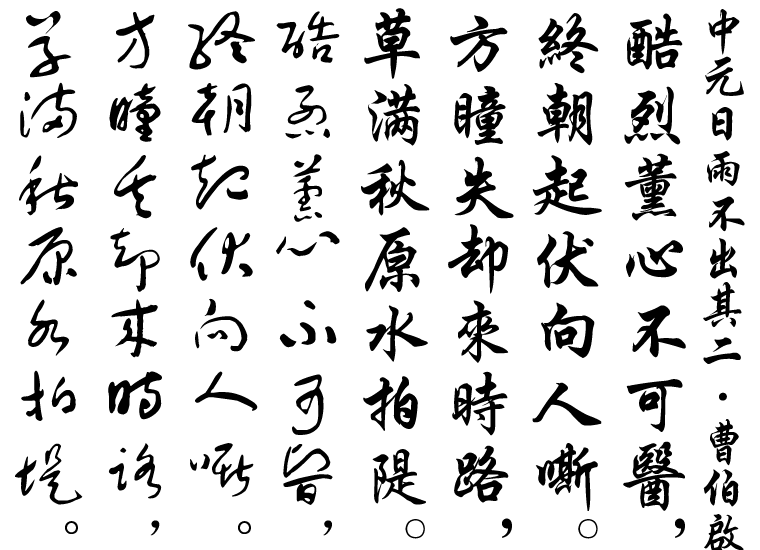 中元日雨不出其二・曹伯啟
酷烈薰心不可醫，
終朝起伏向人嘶。
方瞳失却來時路，
草满秋原水拍隄。
酷烈薰心不可醫，
終朝起伏向人嘶。
方瞳失却來時路，
草满秋原水拍堤。